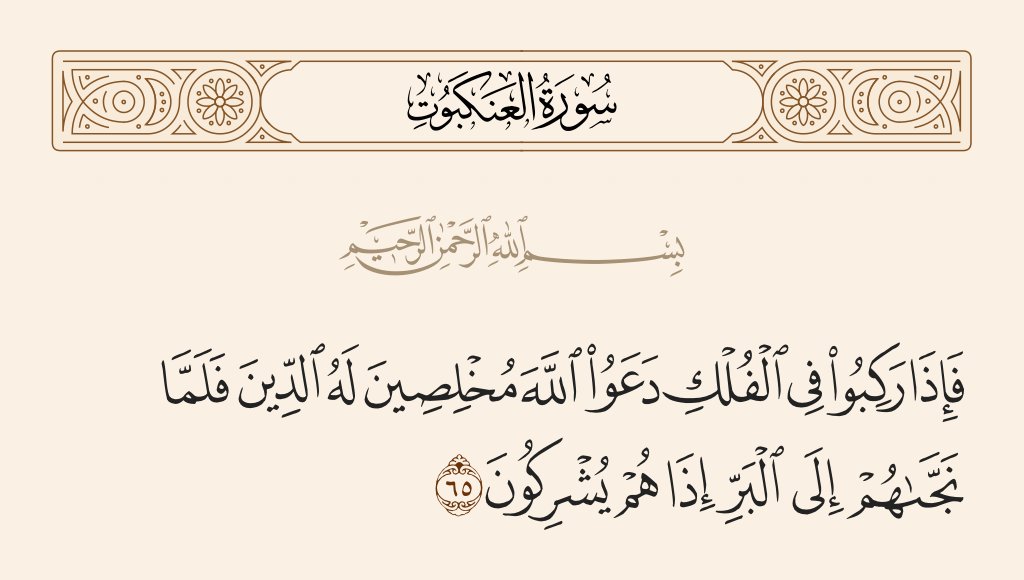 سُورَةُ الْعَنكَبُوتِ
بِسْمِ ٱللَّهِ ٱلرَّحْمَٰنِ ٱلرَّحِيمِ
فَإِذَا رَكِبُوا۟ فِى ٱلْفُلْكِ دَعَوُا۟ ٱللَّهَ مُخْلِصِينَ لَهُ ٱلدِّينَ فَلَمَّا
نَجَّىٰهُمْ إِلَى ٱلْبَرِّ إِذَا هُمْ يُشْرِكُونَ ٦٥